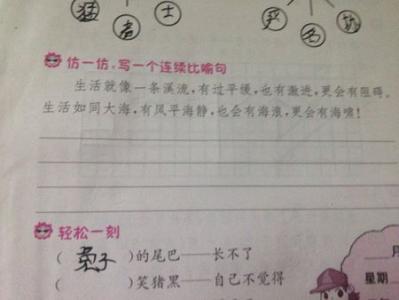 猛 者 士 严 名
仿一仿，写一个连续比喻句
生活就像一条溪流，有过平缓，也有激进，更会有阻碍。
生活如同大海，有风平海静，也会有海浪，更会有海啸！
轻松一刻
( 兔子 )的尾巴——长不了
( )笑猪黑——自己不觉得
星期